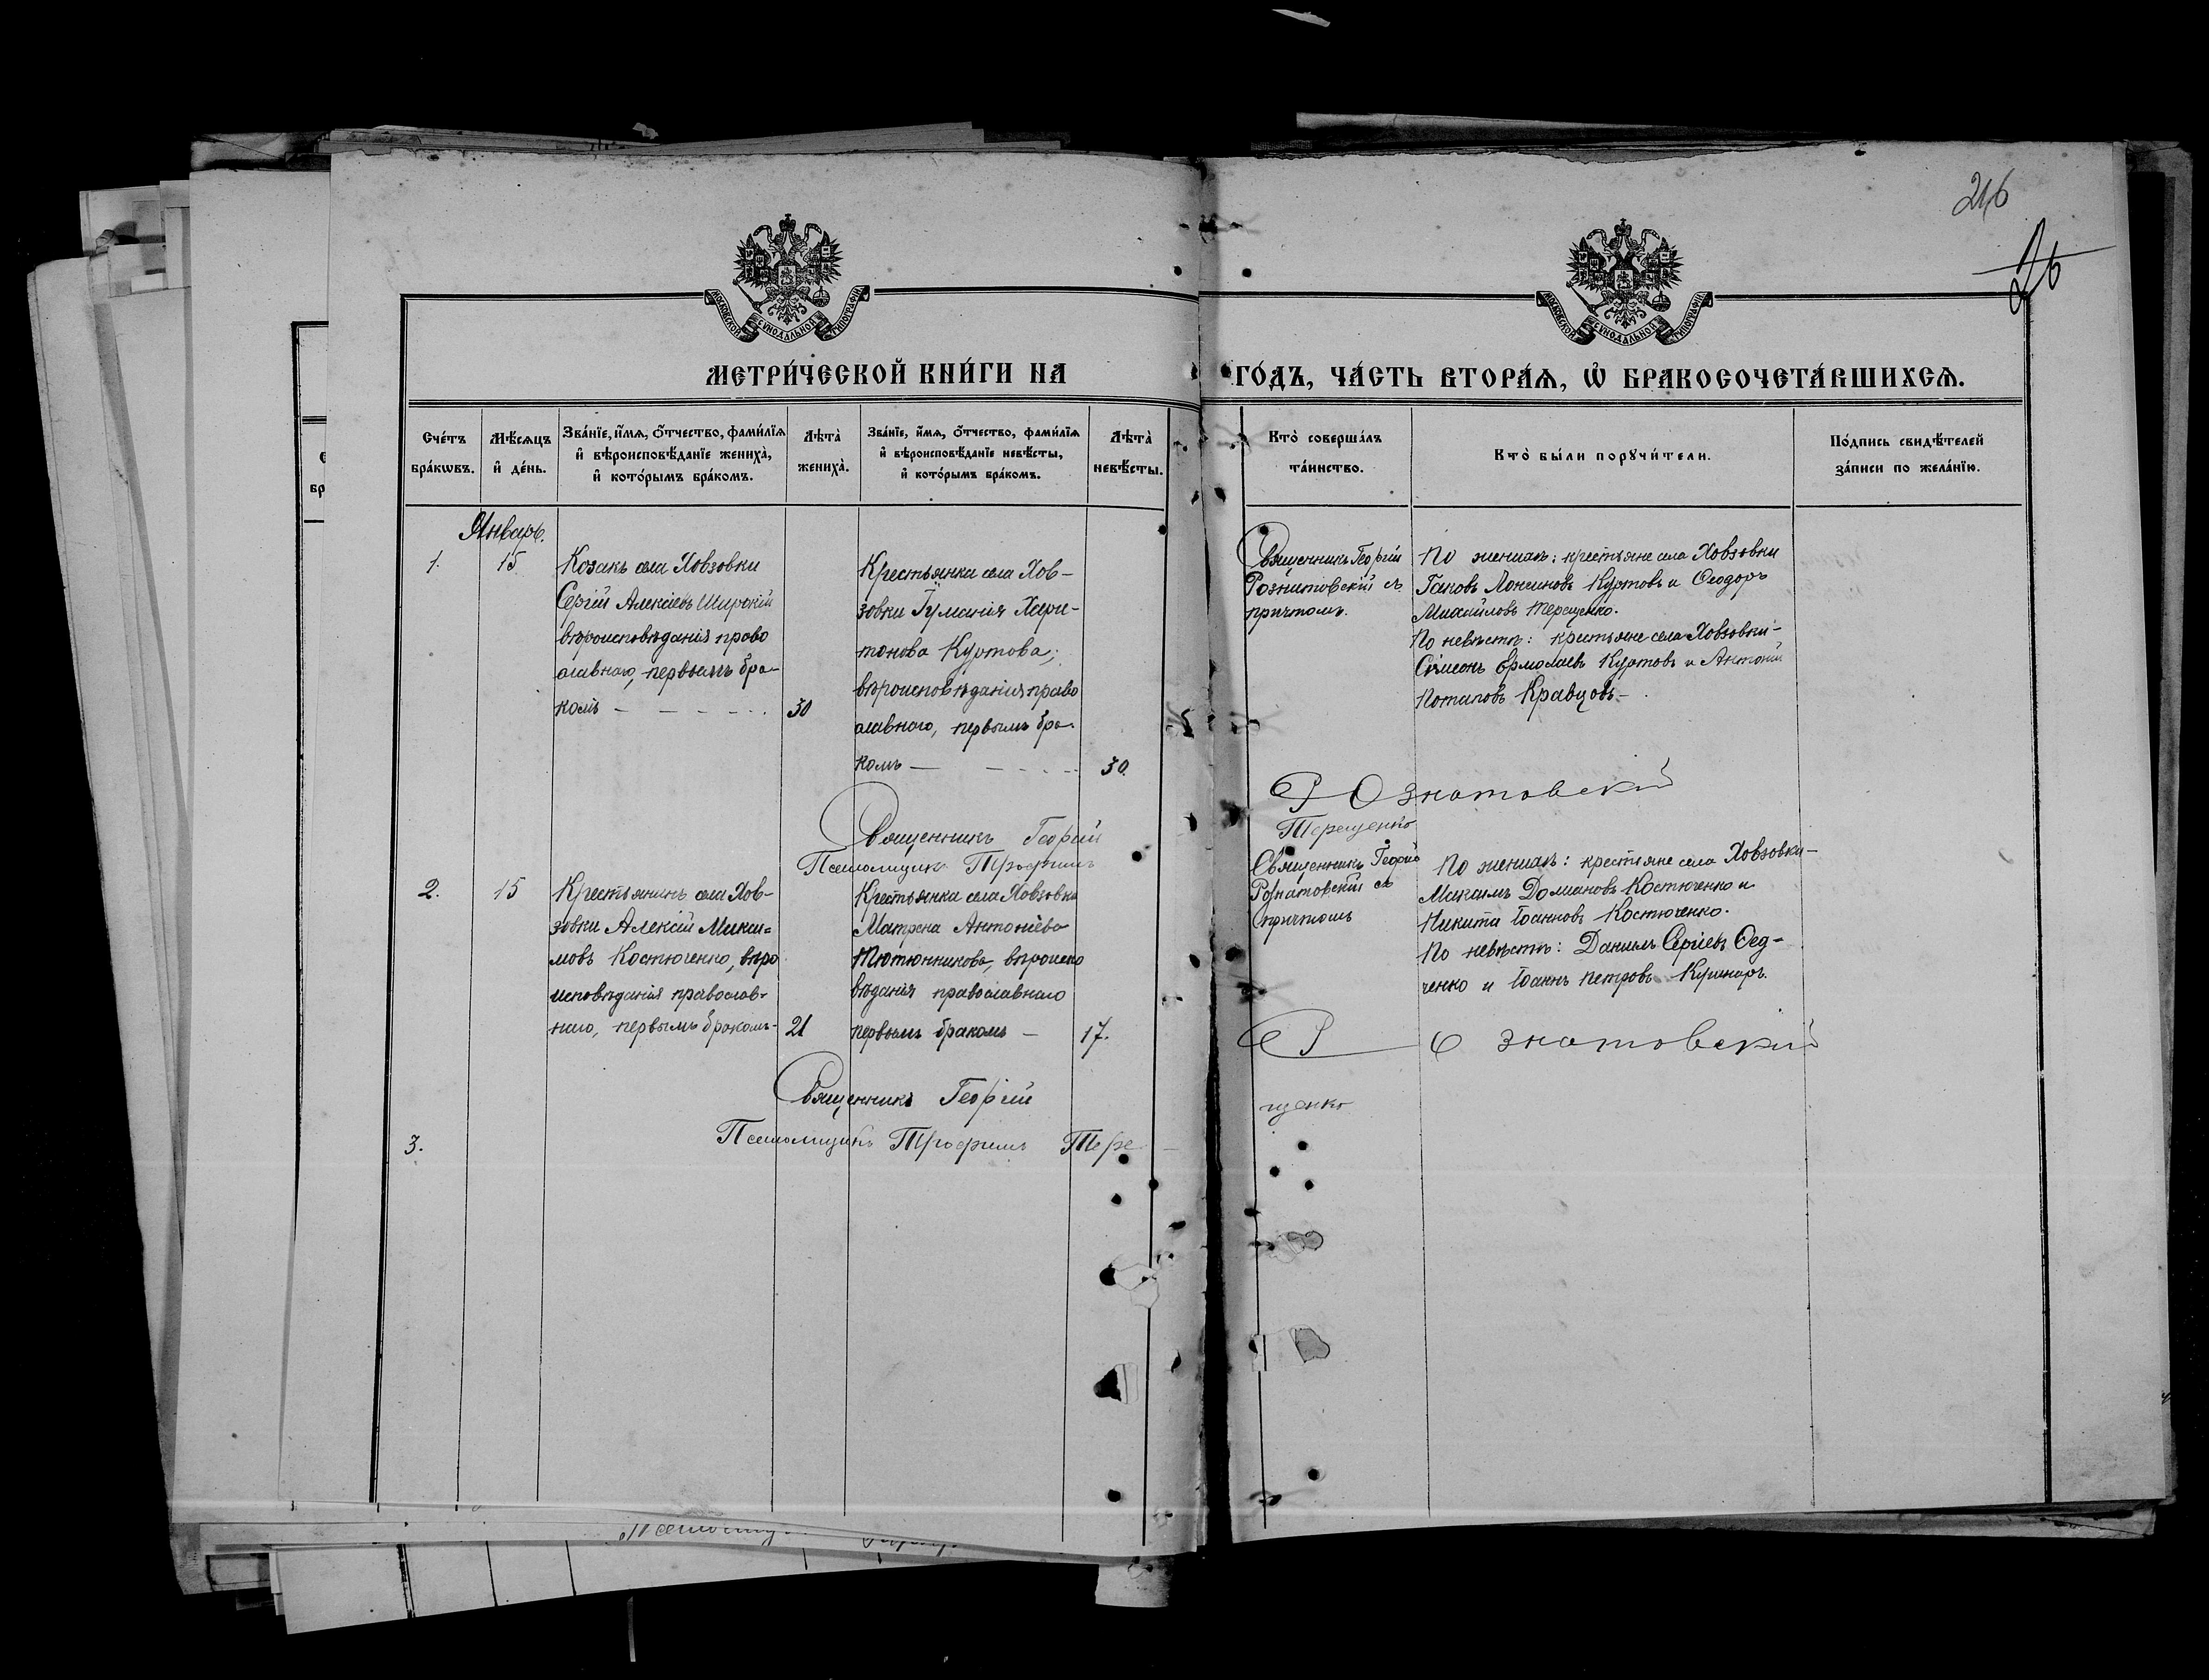 216
26
МОСКОВСКОЙ СѴНОДАЛЬНОЙ ТИПОГРАФІИ
МОСКОВСКОЙ СѴНОДАЛЬНОЙ ТИПОГРАФІИ
МЕТРИ́ЧЕСКОЙ КНИ́ГИ НА ГО́ДЪ, ЧА́СТЬ ВТОРА́Я, Ѽ БРАКОСОЧЕТА́ВШИХСЯ.
Сче́тъ бра́кωвъ.
Мѣ́сяцъ и҆ де́нь.
Зва́нїе, и҆́мя, ѻ҆́тчество, фами́лїя и҆ вѣроисповѣ́данїе жениха̀, и҆ кото́рымъ бра́комъ.
Лѣта̀ жениха̀.
Зва́нїе, и҆́мя, ѻ҆́тчество, фами́лїя и҆ вѣроисповѣ́данїе невѣ́сты, и҆ кото́рымъ бра́комъ.
Лѣта̀ невѣ́сты.
Кто̀ соверша́лъ та́инство.
Кто̀ бы́ли порꙋчи́тели.
По́дпись свидѣ́телей за́писи по жела́нїю.
Январь.
1.
15
Козакъ села Ховзовки
Сергій Алексіевъ Широкій
вѣроисповѣданія право
славнаго, первымъ бра-
комъ
30
Крестьянка села Хов-
зовки Іуманія Хари-
тонова Куртова;
вѣроисповѣданія право
славнаго, первымъ бра-
комъ
30.
Священникъ Георгій
Рознатовскій съ
причтомъ.
По женихѣ: крестьяне села Ховзовки
Іаковъ Лонгиновъ Куртовъ и Ѳеодоръ
Михайловъ Терещенко.
По невѣстѣ: крестьяне села Ховзовки-
Сѵмеонъ Ермолаевъ Куртовъ и Антоній
Потаповъ Кравцовъ-
Священникъ Георгій Рознатовскій
Псаломщикъ Трофимъ Терещенко
2.
15
Крестьянинъ села Хов-
зовки Алексій Макси=
мовъ Костюченко, вѣро
исповѣданія православ-
наго, первымъ бракомъ-
21
Крестьянка села Ховзовки
Матрена Антоніева
Тютюнникова, вѣроиспо
вѣданія православнаго
первымъ бракомъ -
17.
Священникъ Георгій
Рознатовскій съ
причтомъ
По женихѣ: крестьяне села Ховзовки-
Максимъ Доміановъ Костюченко и
Никита Іоанновъ Костюченко.
По невѣстѣ: Даніилъ Сергіевъ Ѳед-
ченко и Іоаннъ Петровъ Кушнаръ.
Священникъ Георгій Рознатовскій
Псаломщикъ Трофимъ Тере
щенко
3.